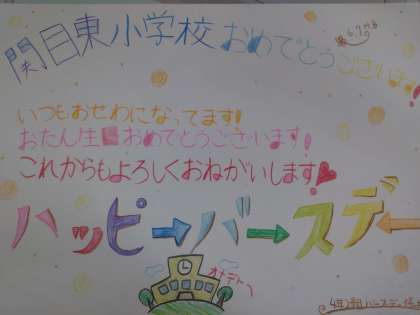 関目東小学校おめでとうございます!
いつもおせわになってます!
おたん生日おめでとうございます!
これからもよろしくおねがいします
ハッピーバースデー
オメデトー